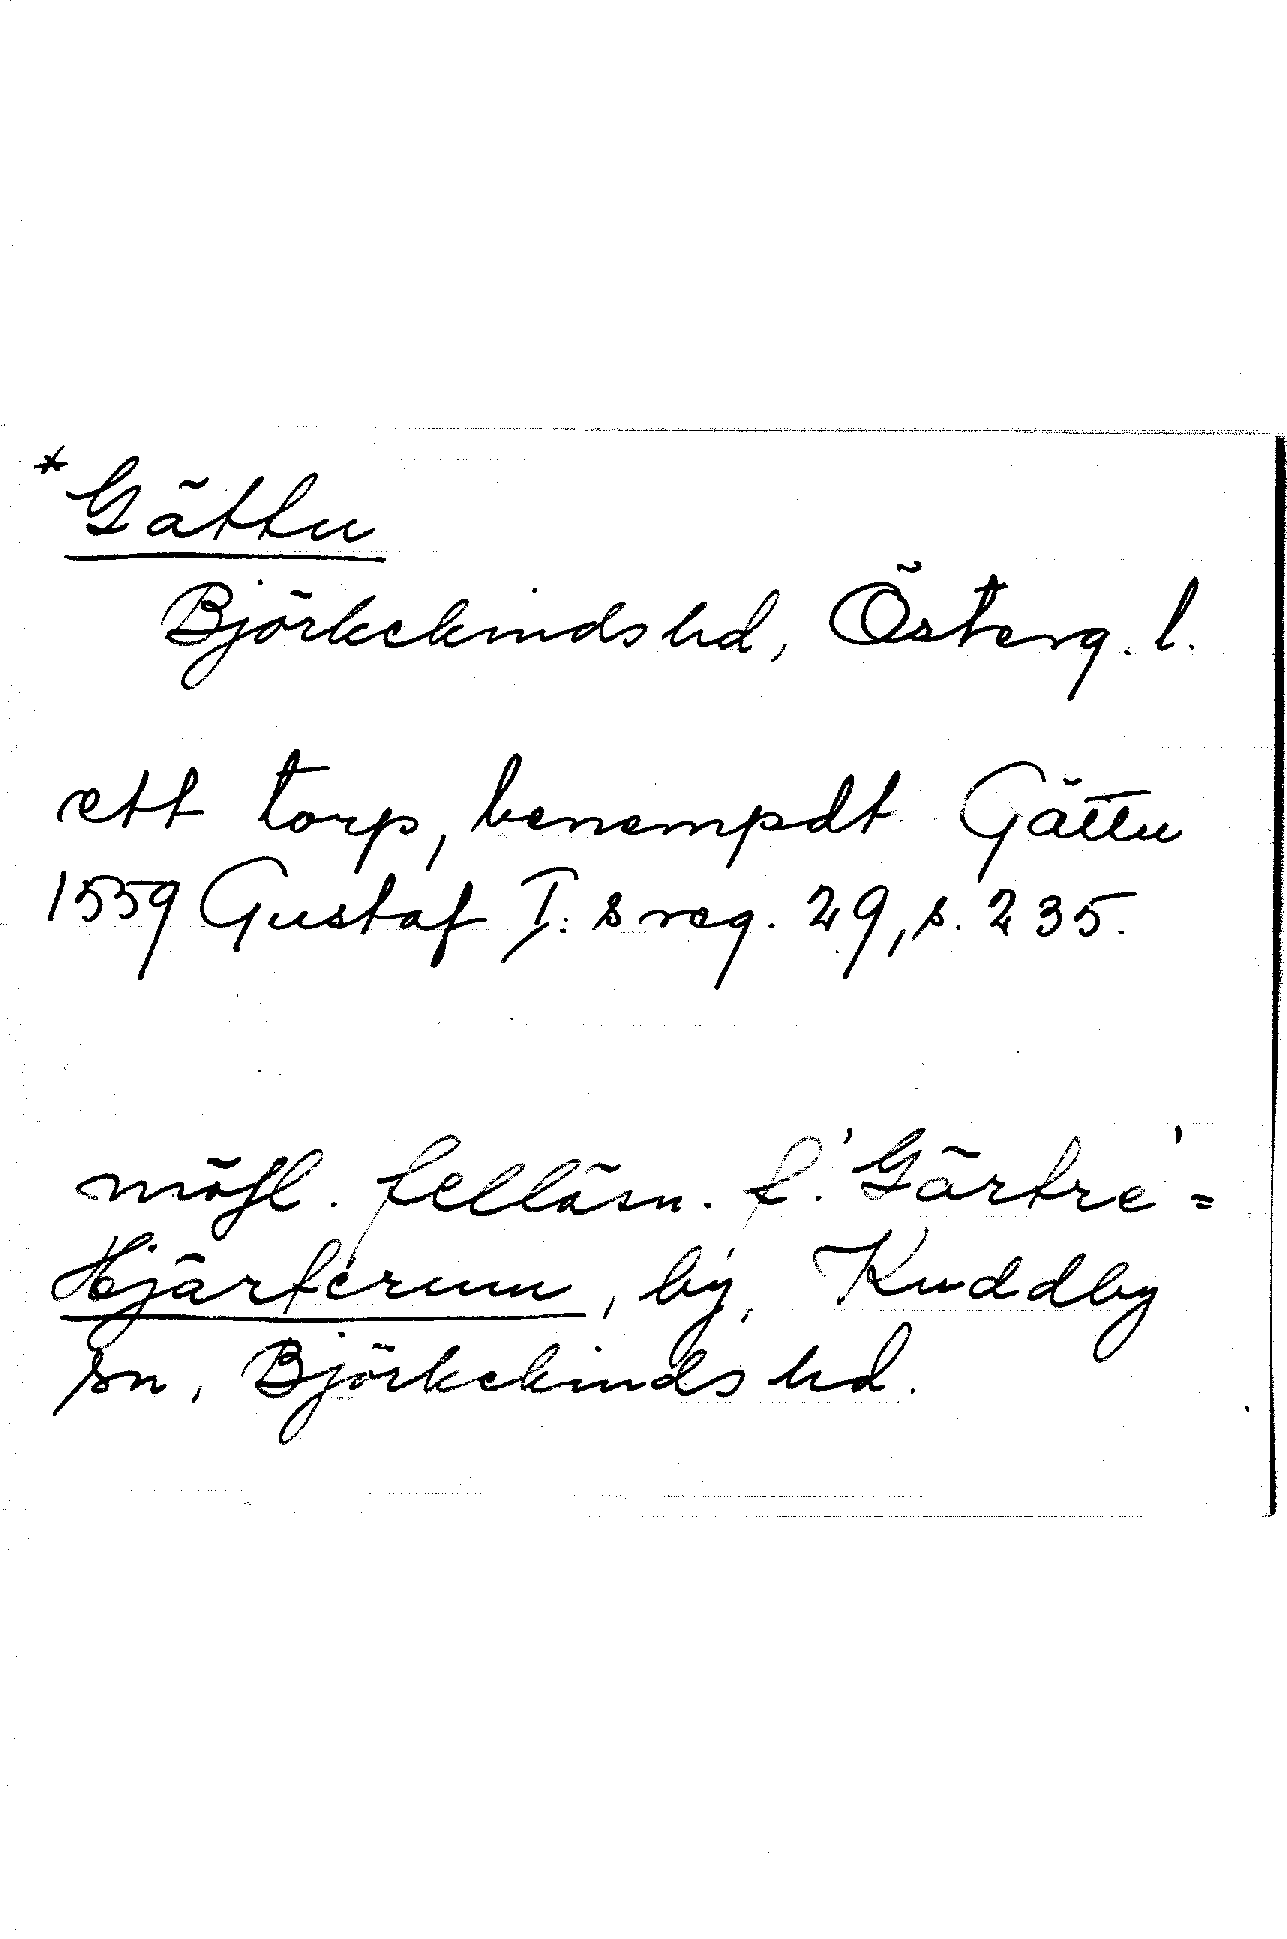 *Gättu
Björkekinds hd, Österg. l.
ett torp, benempdt Gättu
1559 Gustaf I:s reg. 29, s. 235.
möjl. felläsn. f. 'Gärtre' =
Hjärterum, by, Kuddby
sn, Björkekinds hd.